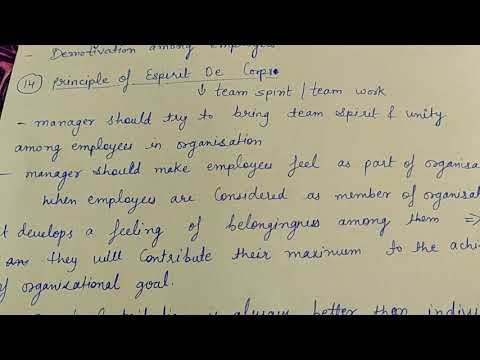 - Demotivation among employees
14 principle of Espirit De Corps.
↓ team spirit / team work
- manager should try to bring team spirit & unity
among employees in organisation
- manager should make employees feel as part of organisa
when employees are considered as member of organisat
t develops a feeling of belongingness among them ⇒
they will contribute their maximum to the achi
of organisational goal.
is always better than indivi